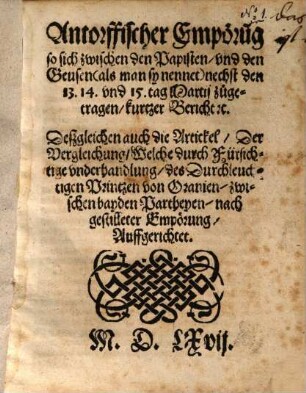 Antorffischer Empörũg
so sich zwischen den Papisten/ vnd den
Geusen (als man sy nennet) nechst den
13. 14. vnd 15. tag Martij zůge-
tragen/ kurtzer Bericht ꝛc.
Deßgleichen auch die Artickel/ Der
Vergleichung/ Welche durch Fürsich-
tige vnderhandlung/ des Durchleuch-
tigen Printzen von Oranien/ zwi-
schen bayden Partheyen/ nach
gestilleter Empörung/
Auffgerichtet.
M. D. LXvij.